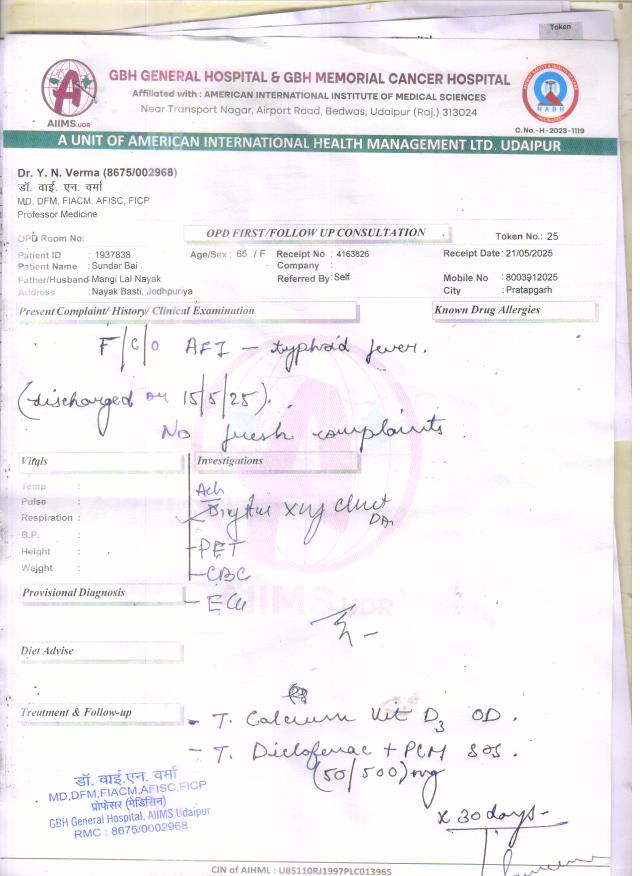 Token
GBH GENERAL HOSPITAL & GBH MEMORIAL CANCER HOSPITAL
Affiliated with : AMERICAN INTERNATIONAL INSTITUTE OF MEDICAL SCIENCES
Near Transport Nagar, Airport Road, Bedwas, Udaipur (Raj.) 313024
AIIMS.UDR
NABH
C.No.-H-2023-1119
A UNIT OF AMERICAN INTERNATIONAL HEALTH MANAGEMENT LTD. UDAIPUR
Dr. Y. N. Verma (8675/002968)
डॉ. वाई. एन. वर्मा
MD, DFM, FIACM, AFISC, FICP
Professor Medicine
OPD FIRST/FOLLOW UP CONSULTATION
Token No.: 25
OPD Room No:
Patient ID : 1937838 Age/Sex : 65 / F Receipt No : 4163826 Receipt Date : 21/05/2025
Patient Name : Sundar Bai . Company :
Father/Husband Mangi Lal Nayak Referred By : Self Mobile No : 8003912025
Address : Nayak Basti, Jodhpuriya City : Pratapgarh
Present Complaint/ History/ Clinical Examination Known Drug Allergies
F/C/O AFI - typhoid fever.
(discharged on 15/5/25).
No fresh complaints
Vitals Investigations
Temp :
Pulse :
Respiration :
B.P. :
Height :
Weight :
Adv
Xray Chest
- CBC
Provisional Diagnosis
AIIMS.UDR
Diet Advise
Treatment & Follow-up
- T. Calcium Vit D3 OD.
- T. Diclofenac + PCM SOS.
(50/500) mg
x 30 days -
डॉ. वाई.एन. वर्मा
MD,DFM,FIACM,AFISC,FICP
प्रोफेसर (मेडिसिन)
GBH General Hospital, AIIMS Udaipur
RMC : 8675/0002968
CIN of AIHML : U85110RJ1997PLC013965